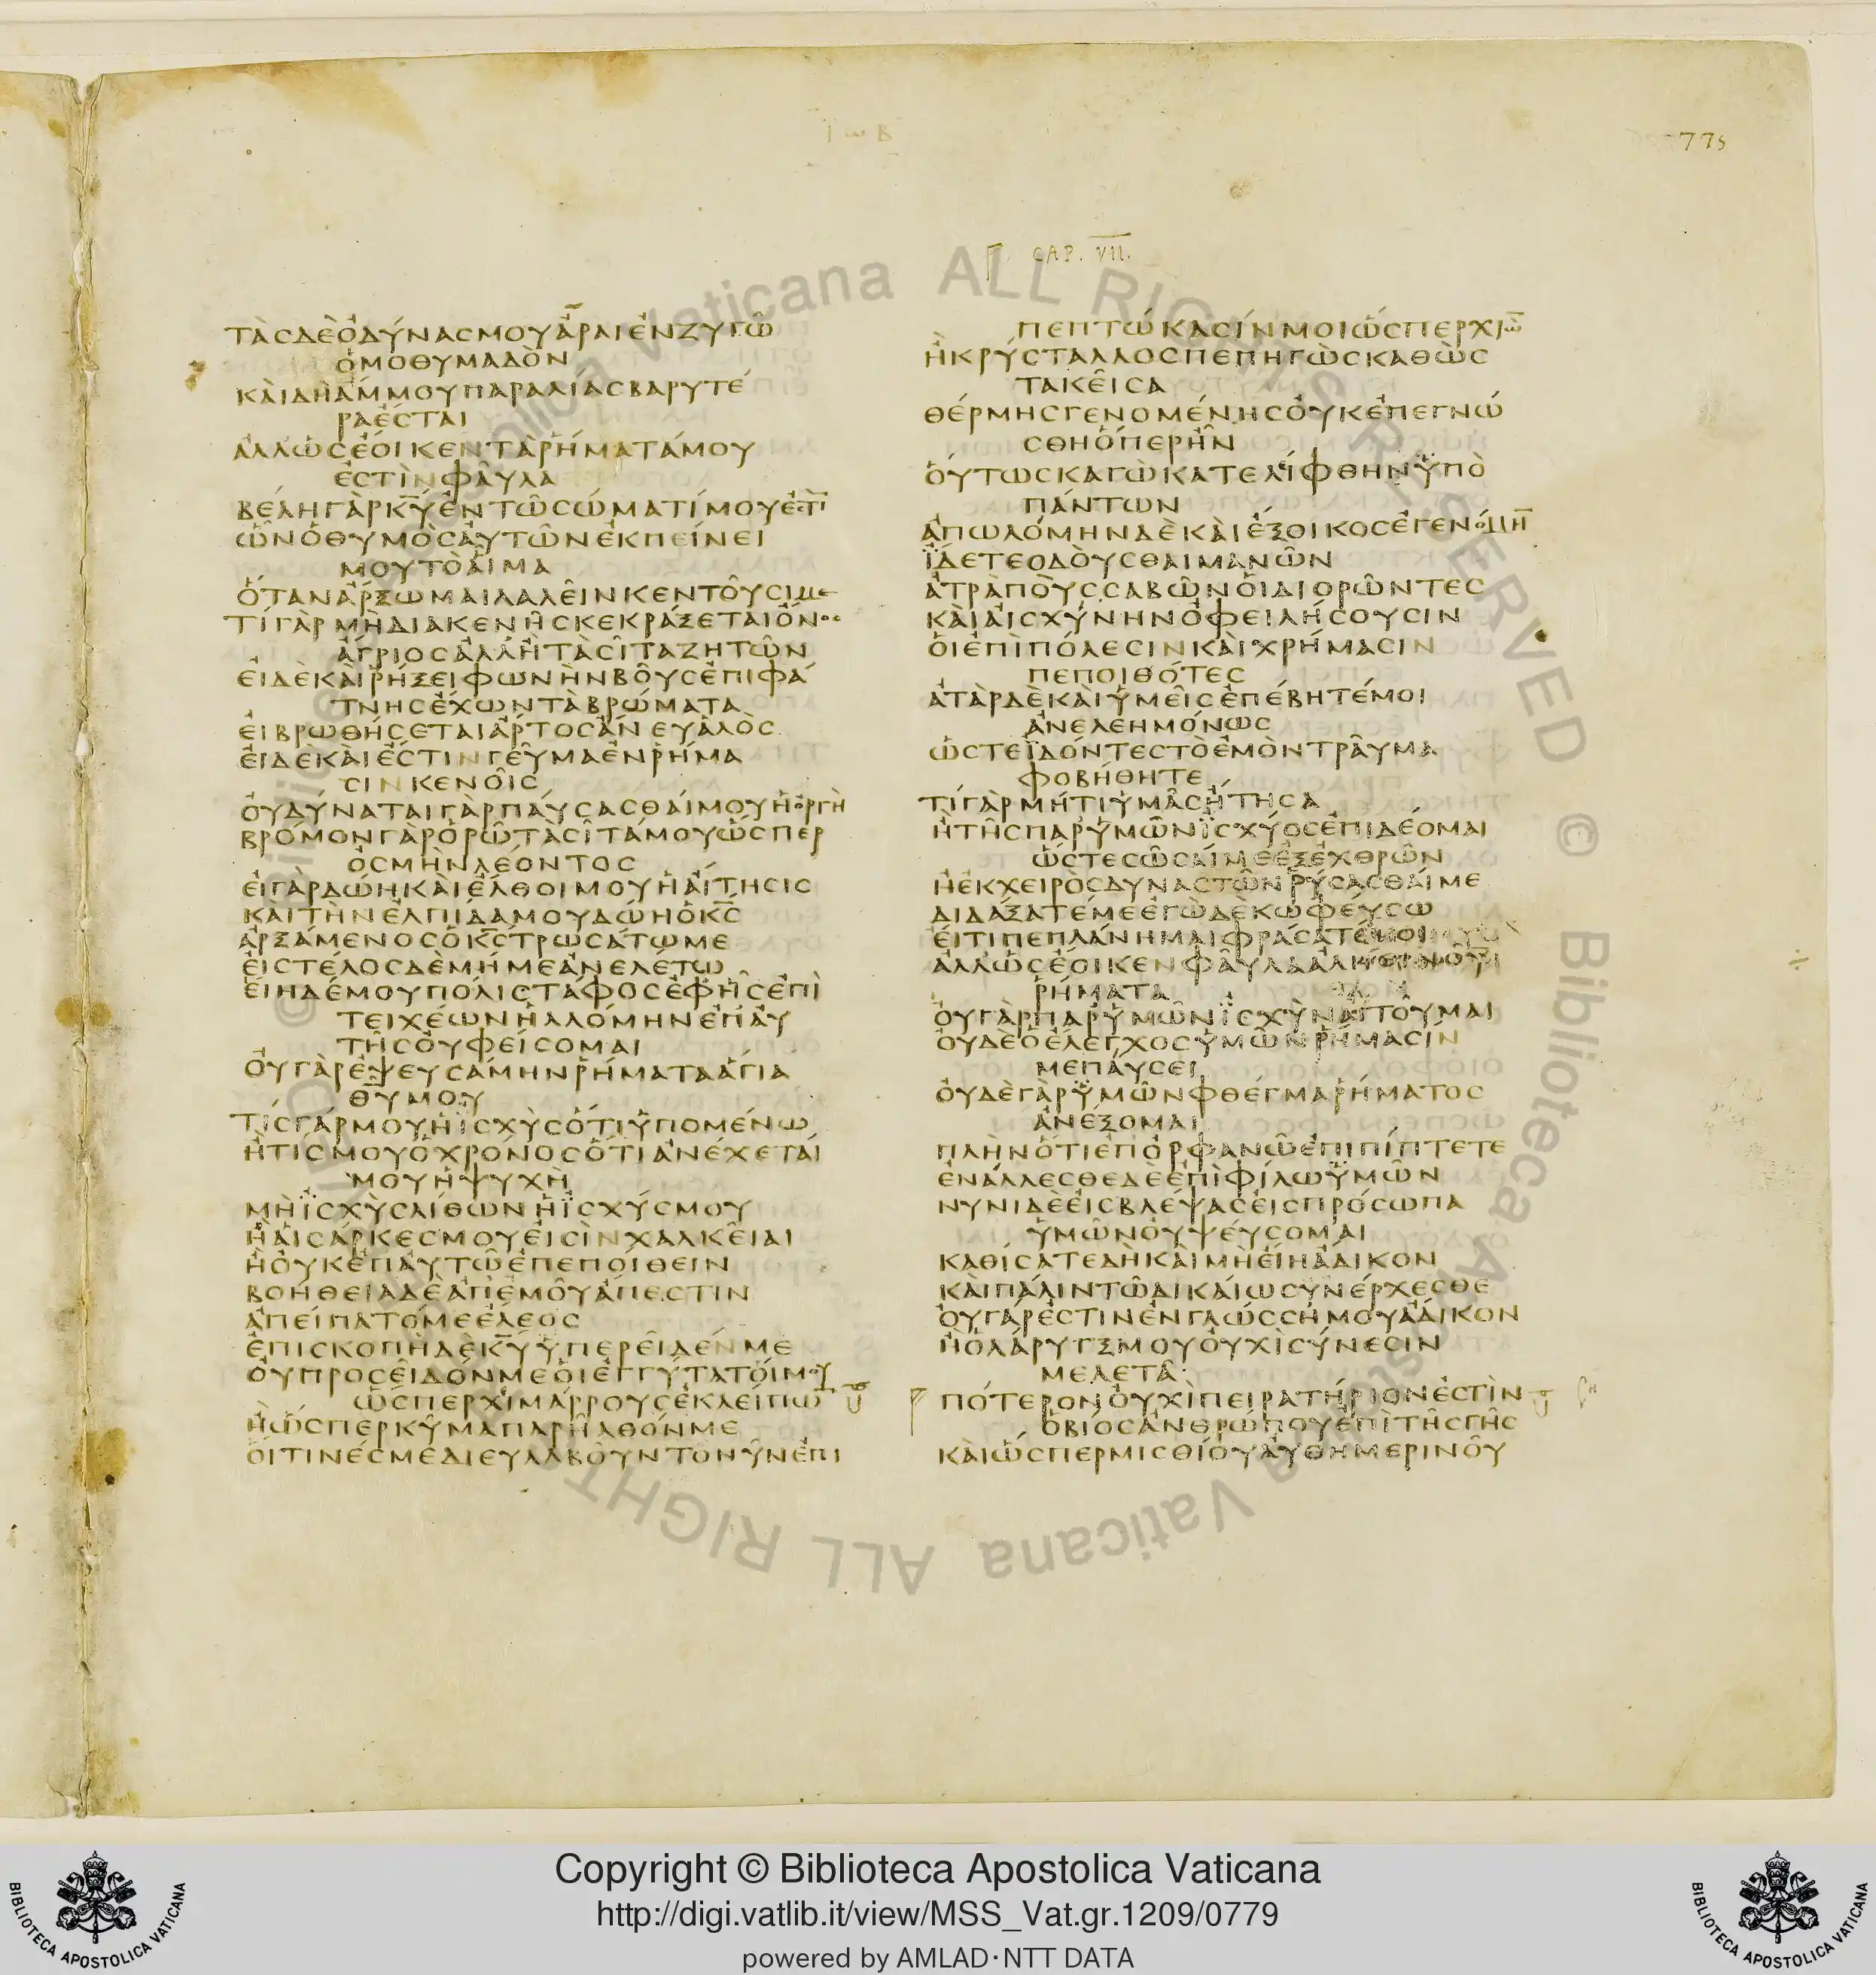 ΙΩΒ
775
CAP. VII.
ΤΑϹΔΕΟΔΥΝΑϹΜΟΥΑΡΑΙΕΝΖΥΓΩ
ΟΜΟΘΥΜΑΔΟΝ
ΚΑΙΔΗΑΜΜΟΥΠΑΡΑΛΙΑϹΒΑΡΥΤΕ
ΡΑΕϹΤΑΙ
ΑΛΛΩϹΕΟΙΚΕΝΤΑΡΗΜΑΤΑΜΟΥ
ΕϹΤΙΝΦΑΥΛΑ
ΒΕΛΗΓΑΡΚΥΕΝΤΩϹΩΜΑΤΙΜΟΥΕϹΤΙ
ΩΝΟΘΥΜΟϹΑΥΤΩΝΕΚΠΕΙΝΕΙ
ΜΟΥΤΟΑΙΜΑ
ΟΤΑΝΑΡΞΩΜΑΙΛΑΛΕΙΝΚΕΝΤΟΥϹΙΜΕ
ΤΙΓΑΡΜΗΔΙΑΚΕΝΗϹΚΕΚΡΑΞΕΤΑΙΟΝΟϹ
ΑΓΡΙΟϹΑΛΛΗΤΑϹΙΤΑΖΗΤΩΝ
ΕΙΔΕΚΑΙΡΗΞΕΙΦΩΝΗΝΒΟΥϹΕΠΙΦΑ
ΤΝΗϹΕΧΩΝΤΑΒΡΩΜΑΤΑ
ΕΙΒΡΩΘΗϹΕΤΑΙΑΡΤΟϹΑΝΕΥΑΛΟϹ
ΕΙΔΕΚΑΙΕϹΤΙΝΓΕΥΜΑΕΝΡΗΜΑ
ϹΙΝΚΕΝΟΙϹ
ΟΥΔΥΝΑΤΑΙΓΑΡΠΑΥϹΑϹΘΑΙΜΟΥΗΟΡΓΗ
ΒΡΟΜΟΝΓΑΡΟΡΩΤΑϹΙΤΑΜΟΥΩϹΠΕΡ
ΟϹΜΗΝΛΕΟΝΤΟϹ
ΕΙΓΑΡΔΩΗΚΑΙΕΛΘΟΙΜΟΥΗΑΙΤΗϹΙϹ
ΚΑΙΤΗΝΕΛΠΙΔΑΜΟΥΔΩΗΟΚϹ
ΑΡΞΑΜΕΝΟϹΟΚϹΤΡΩϹΑΤΩΜΕ
ΕΙϹΤΕΛΟϹΔΕΜΗΜΕΑΝΕΛΕΤΩ
ΕΙΗΔΕΜΟΥΠΟΛΙϹΤΑΦΟϹΕΦΗϹΕΠΙ
ΤΕΙΧΕΩΝΗΛΛΟΜΗΝΕΠΑΥ
ΤΗϹΟΥΦΕΙϹΟΜΑΙ
ΟΥΓΑΡΕΨΕΥϹΑΜΗΝΡΗΜΑΤΑΑΓΙΑ
ΘΥΜΟΥ
ΤΙϹΓΑΡΜΟΥΗΙϹΧΥϹΟΤΙΥΠΟΜΕΝΩ
ΗΤΙϹΜΟΥΟΧΡΟΝΟϹΟΤΙΑΝΕΧΕΤΑΙ
ΜΟΥΗΨΥΧΗ
ΜΗΙϹΧΥϹΛΙΘΩΝΗΙϹΧΥϹΜΟΥ
ΗΑΙϹΑΡΚΕϹΜΟΥΕΙϹΙΝΧΑΛΚΕΙΑΙ
ΗΟΥΚΕΠΑΥΤΩΕΠΕΠΟΙΘΕΙΝ
ΒΟΗΘΕΙΑΔΕΑΠΕΜΟΥΑΠΕϹΤΙΝ
ΑΠΕΙΠΑΤΟΜΕΕΛΕΟϹ
ΕΠΙϹΚΟΠΗΔΕΚΥΥΠΕΡΕΙΔΕΝΜΕ
ΟΥΠΡΟϹΕΙΔΟΝΜΕΟΙΕΓΓΥΤΑΤΟΙΜΟΥ
ΩϹΠΕΡΧΙΜΑΡΡΟΥϹΕΚΛΕΙΠΩ
ΗΩϹΠΕΡΚΥΜΑΠΑΡΗΛΘΟΝΜΕ
ΟΙΤΙΝΕϹΜΕΔΙΕΥΛΑΒΟΥΝΤΟΝΥΝΕΠΙ
ΠΕΠΤΩΚΑϹΙΝΜΟΙΩϹΠΕΡΧΙΩ
ΗΚΡΥϹΤΑΛΛΟϹΠΕΠΗΓΩϹΚΑΘΩϹ
ΤΑΚΕΙϹΑ
ΘΕΡΜΗϹΓΕΝΟΜΕΝΗϹΟΥΚΕΠΕΓΝΩ
ϹΘΗΟΠΕΡΗΝ
ΟΥΤΩϹΚΑΓΩΚΑΤΕΛΙΦΘΗΝΥΠΟ
ΠΑΝΤΩΝ
ΑΠΩΛΟΜΗΝΔΕΚΑΙΕΞΟΙΚΟϹΕΓΕΝΟΜΗ
ΙΔΕΤΕΟΔΟΥϹΘΑΙΜΑΝΩΝ
ΑΤΡΑΠΟΥϹϹΑΒΩΝΟΙΔΙΟΡΩΝΤΕϹ
ΚΑΙΑΙϹΧΥΝΗΝΟΦΕΙΛΗϹΟΥϹΙΝ
ΟΙΕΠΙΠΟΛΕϹΙΝΚΑΙΧΡΗΜΑϹΙΝ
ΠΕΠΟΙΘΟΤΕϹ
ΑΤΑΡΔΕΚΑΙΥΜΕΙϹΕΠΕΒΗΤΕΜΟΙ
ΑΝΕΛΕΗΜΟΝΩϹ
ΩϹΤΕΙΔΟΝΤΕϹΤΟΕΜΟΝΤΡΑΥΜΑ
ΦΟΒΗΘΗΤΕ
ΤΙΓΑΡΜΗΤΙΥΜΑϹΗΤΗϹΑ
ΗΤΗϹΠΑΡΥΜΩΝΙϹΧΥΟϹΕΠΙΔΕΟΜΑΙ
ΩϹΤΕϹΩϹΑΙΜΕΕΞΕΧΘΡΩΝ
ΗΕΚΧΕΙΡΟϹΔΥΝΑϹΤΩΝΡΥϹΑϹΘΑΙΜΕ
ΔΙΔΑΞΑΤΕΜΕΕΓΩΔΕΚΩΦΕΥϹΩ
ΕΙΤΙΠΕΠΛΑΝΗΜΑΙΦΡΑϹΑΤΕΜΟΙ
ΑΛΛΩϹΕΟΙΚΕΝΦΑΥΛΑ
ΡΗΜΑΤΑ
ΟΥΓΑΡΠΑΡΥΜΩΝΙϹΧΥΝΑΙΤΟΥΜΑΙ
ΟΥΔΕΟΕΛΕΓΧΟϹΥΜΩΝΡΗΜΑϹΙΝ
ΜΕΠΑΥϹΕΙ
ΟΥΔΕΓΑΡΥΜΩΝΦΘΕΓΜΑΡΗΜΑΤΟϹ
ΑΝΕΞΟΜΑΙ
ΠΛΗΝΟΤΙΕΠΟΡΦΑΝΩΕΠΙΠΙΠΤΕΤΕ
ΕΝΑΛΛΕϹΘΕΔΕΕΠΙΦΙΛΩΥΜΩΝ
ΝΥΝΙΔΕΕΙϹΒΛΕΨΑϹΕΙϹΠΡΟϹΩΠΑ
ΥΜΩΝΟΥΨΕΥϹΟΜΑΙ
ΚΑΘΙϹΑΤΕΔΗΚΑΙΜΗΕΙΗΑΔΙΚΟΝ
ΚΑΙΠΑΛΙΝΤΩΔΙΚΑΙΩϹΥΝΕΡΧΕϹΘΕ
ΟΥΓΑΡΕϹΤΙΝΕΝΓΛΩϹϹΗΜΟΥΑΔΙΚΟΝ
ΗΟΛΑΡΥΓΞΜΟΥΟΥΧΙϹΥΝΕϹΙΝ
ΜΕΛΕΤΑ:
ΠΟΤΕΡΟΝΟΥΧΙΠΕΙΡΑΤΗΡΙΟΝΕϹΤΙΝ
ΟΒΙΟϹΑΝΘΡΩΠΟΥΕΠΙΤΗϹΓΗϹ
ΚΑΙΩϹΠΕΡΜΙϹΘΙΟΥΑΥΘΗΜΕΡΙΝΟΥ
ALL RIGHTS RESERVED © Biblioteca Apostolica Vaticana
Copyright © Biblioteca Apostolica Vaticana
http://digi.vatlib.it/view/MSS_Vat.gr.1209/0779
powered by AMLAD·NTT DATA
BIBLIOTECA APOSTOLICA VATICANA
BIBLIOTECA APOSTOLICA VATICANA